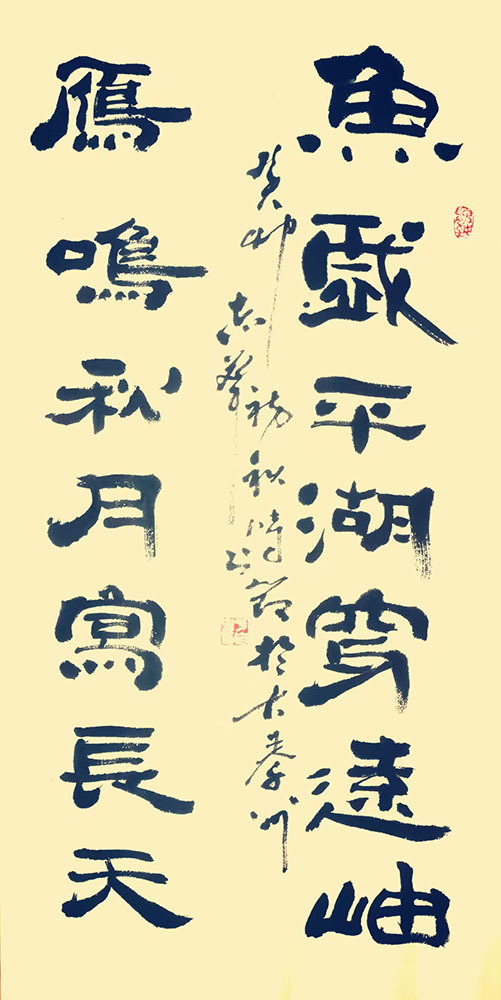 魚戲平湖穿遠岫
雁鳴秋月寫長天
癸卯初秋時節於古秦州